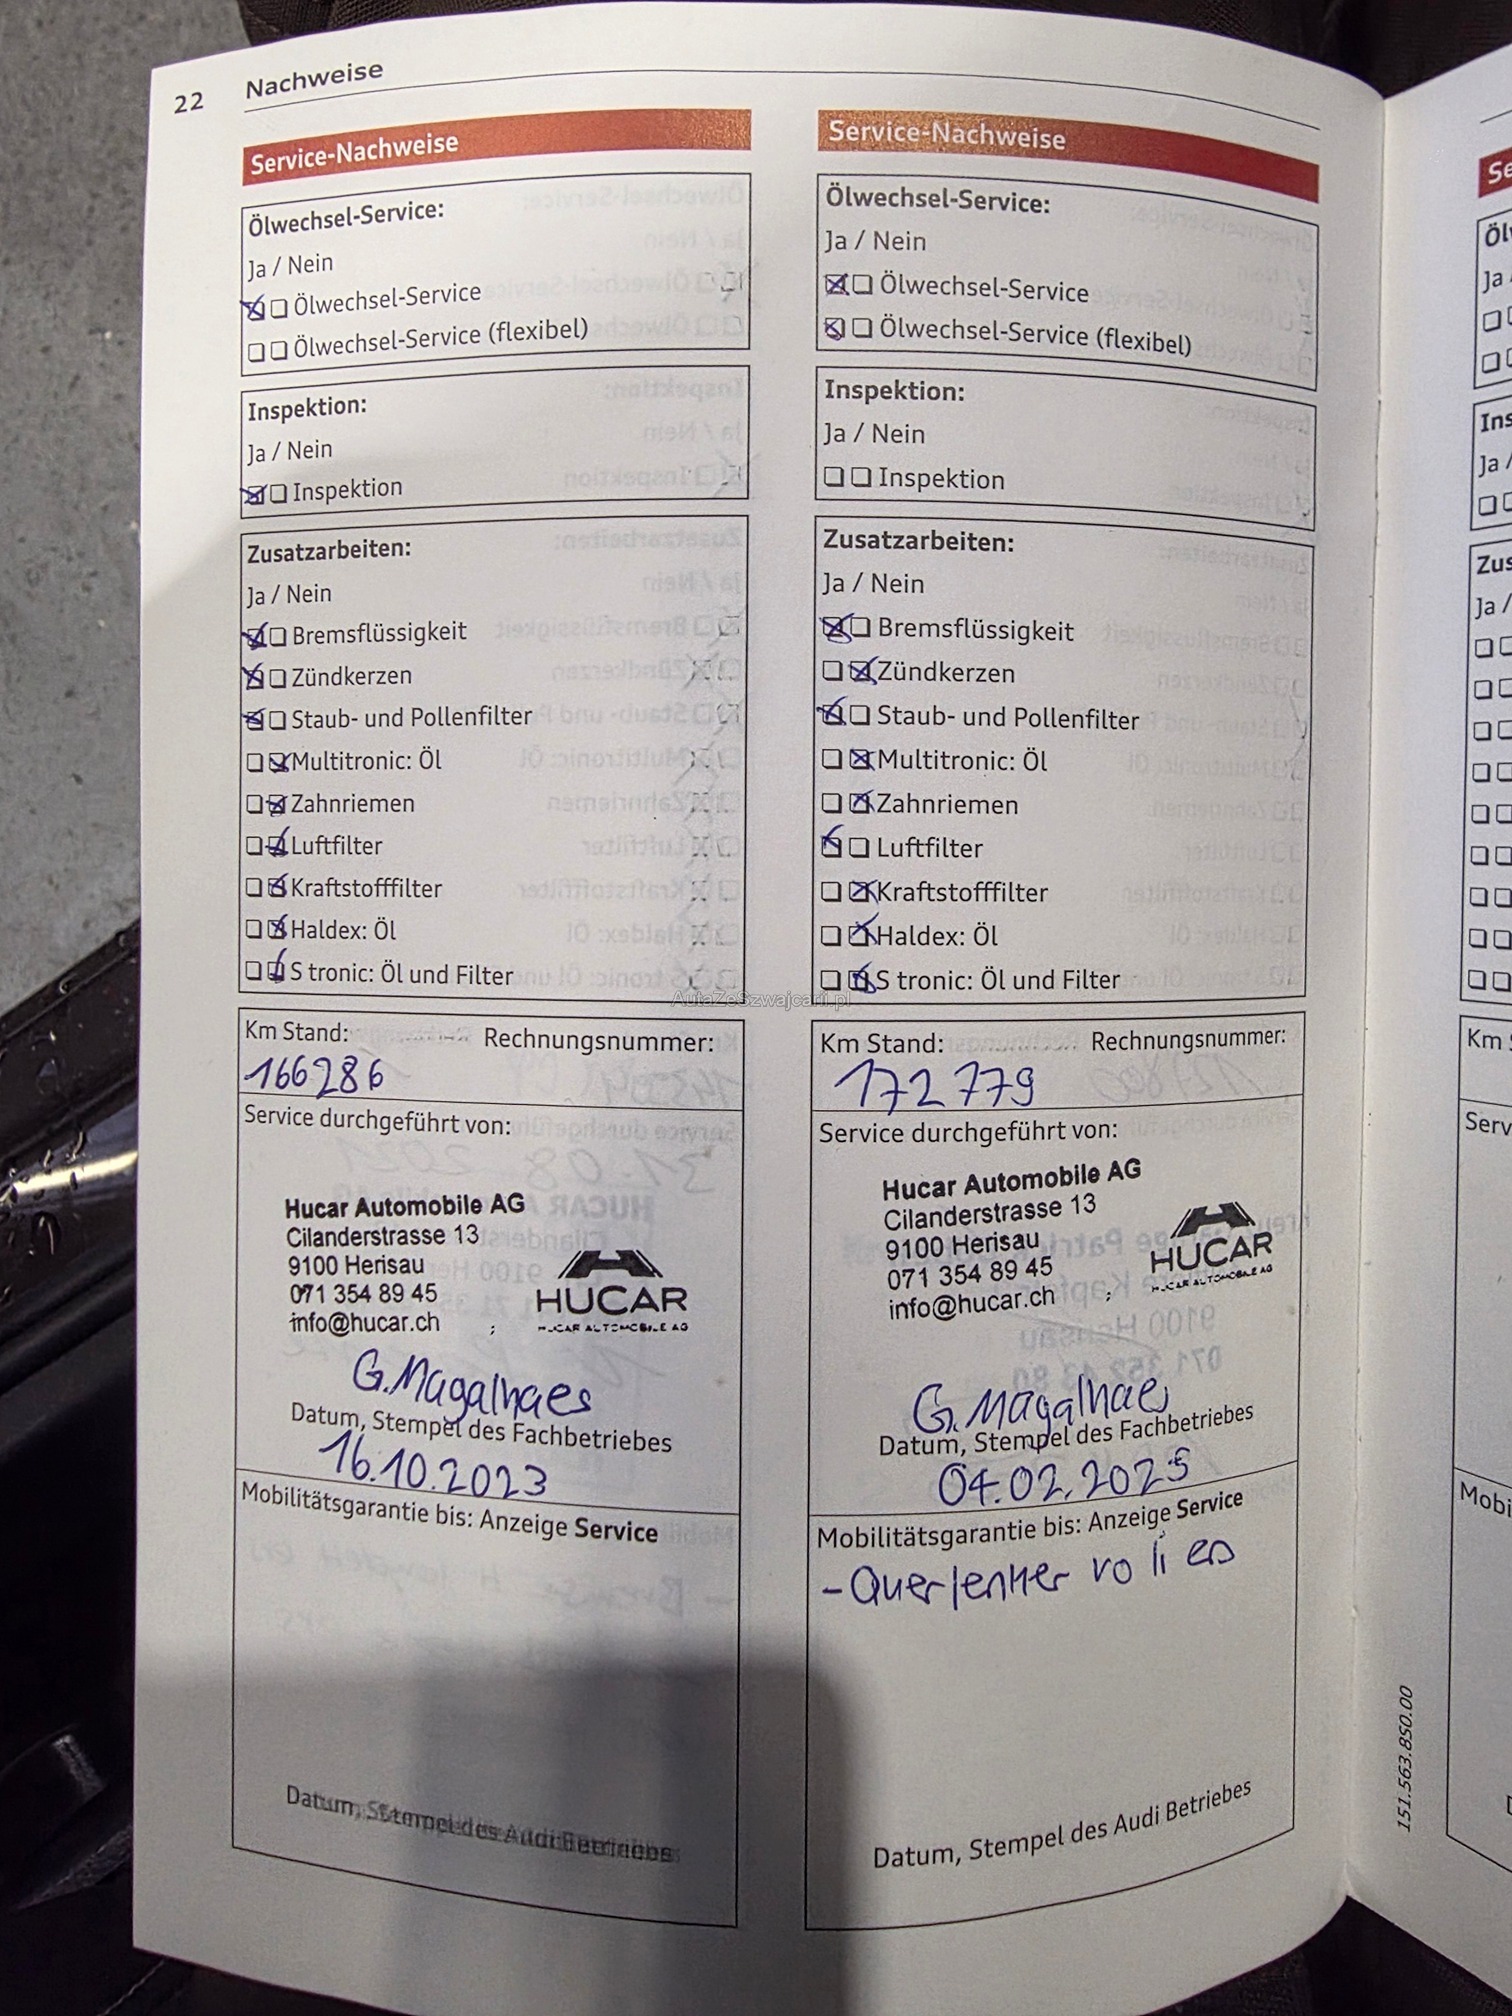 22 Nachweise
Service-Nachweise
Ölwechsel-Service:
Ja / Nein
Ölwechsel-Service
Ölwechsel-Service (flexibel)
Inspektion:
Ja / Nein
Inspektion
Zusatzarbeiten:
Ja / Nein
Bremsflüssigkeit
Zündkerzen
Staub- und Pollenfilter
Multitronic: Öl
Zahnriemen
Luftfilter
Kraftstofffilter
Haldex: Öl
S tronic: Öl und Filter
Km Stand: Rechnungsnummer:
166286
Service durchgeführt von:
Hucar Automobile AG
Cilanderstrasse 13
9100 Herisau
071 354 89 45
info@hucar.ch
HUCAR
HUCAR AUTOMOBILE AG
G. Magalhaes
Datum, Stempel des Fachbetriebes
16.10.2023
Mobilitätsgarantie bis: Anzeige Service
Datum, Stempel des Audi Betriebes
Service-Nachweise
Ölwechsel-Service:
Ja / Nein
Ölwechsel-Service
Ölwechsel-Service (flexibel)
Inspektion:
Ja / Nein
Inspektion
Zusatzarbeiten:
Ja / Nein
Bremsflüssigkeit
Zündkerzen
Staub- und Pollenfilter
Multitronic: Öl
Zahnriemen
Luftfilter
Kraftstofffilter
Haldex: Öl
S tronic: Öl und Filter
Km Stand: Rechnungsnummer:
172 779
Service durchgeführt von:
Hucar Automobile AG
Cilanderstrasse 13
9100 Herisau
071 354 89 45
info@hucar.ch
HUCAR
HUCAR AUTOMOBILE AG
G. Magalhaes
Datum, Stempel des Fachbetriebes
04.02.2025
Mobilitätsgarantie bis: Anzeige Service
- Querlenker vo li
Datum, Stempel des Audi Betriebes
151.563.850.00
AutaZeSzwajcarii.pl
Se
Öl
Ja
Ins
Ja /
Zus
Ja /
Km
Serv
Mobi